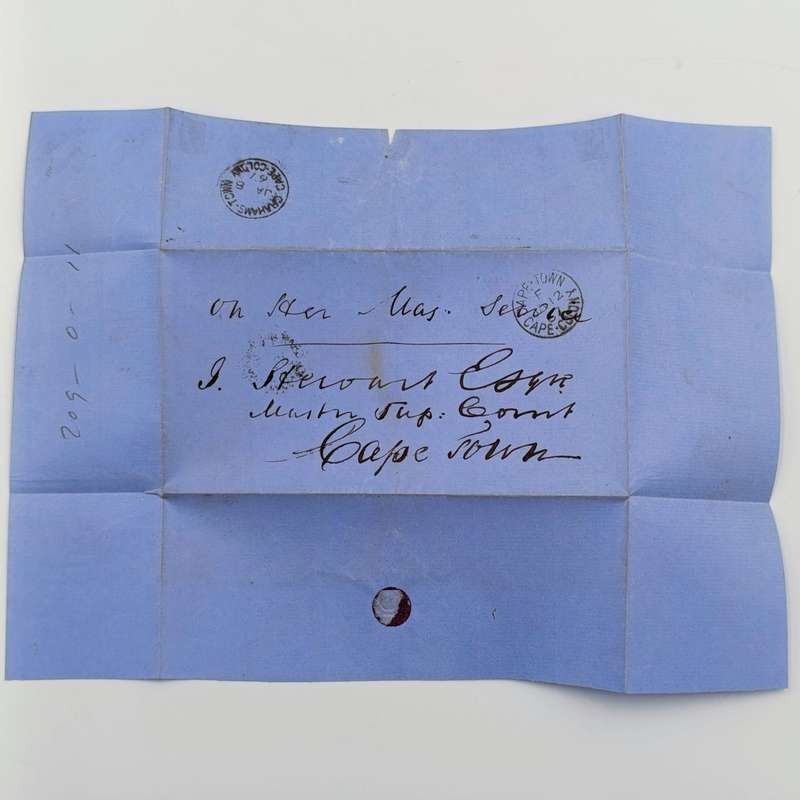 GRAHAMS-TOWN
CAPE-COLONY
JA
CAPE-TOWN
CAPE-COLONY
12
On Her Mas. Service
J. Stewart Esqre
Master Sup: Court
Cape Town
209-0-11